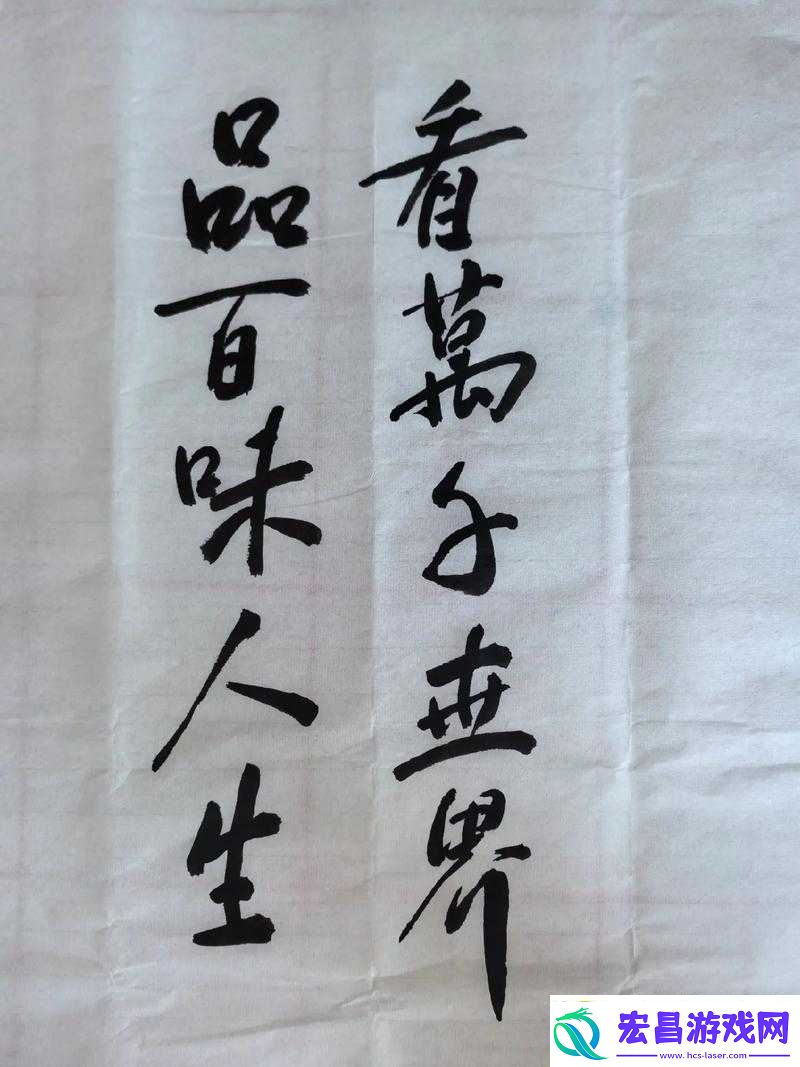 看萬千世界
品百味人生
宏昌游戏网
www.hcs-laser.com